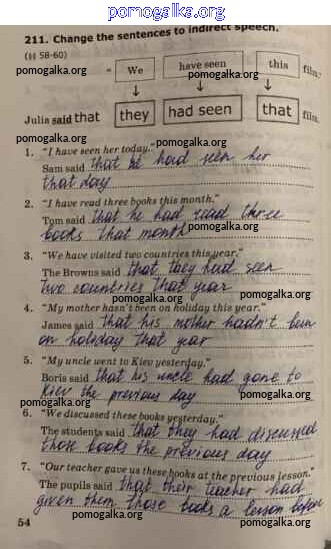 pomogalka.org
211. Change the sentences to indirect speech.
(§§ 58-60)
pomogalka.org pomogalka.org
" We have seen this film."
pomogalka.org
Julia said that they had seen that film.
pomogalka.org
1. "I have seen her today."
Sam said that he had seen her
that day
pomogalka.org pomogalka.org
2. "I have read three books this month."
Tom said that he had read three
books that month
pomogalka.org
3. "We have visited two countries this year."
The Browns said that they had seen
two countries that year
pomogalka.org
4. "My mother hasn't been on holiday this year."
James said that his mother hadn't been
on holiday that year
pomogalka.org pomogalka.org
5. "My uncle went to Kiev yesterday."
Boris said that his uncle had gone to
Kiev the previous day
pomogalka.org
6. "We discussed these books yesterday."
The students said that they had discussed
those books the previous day
pomogalka.org pomogalka.org
7. "Our teacher gave us these books at the previous lesson."
The pupils said that their teacher had
given them those books a lesson before
54
pomogalka.org pomogalka.org
pomogalka.org